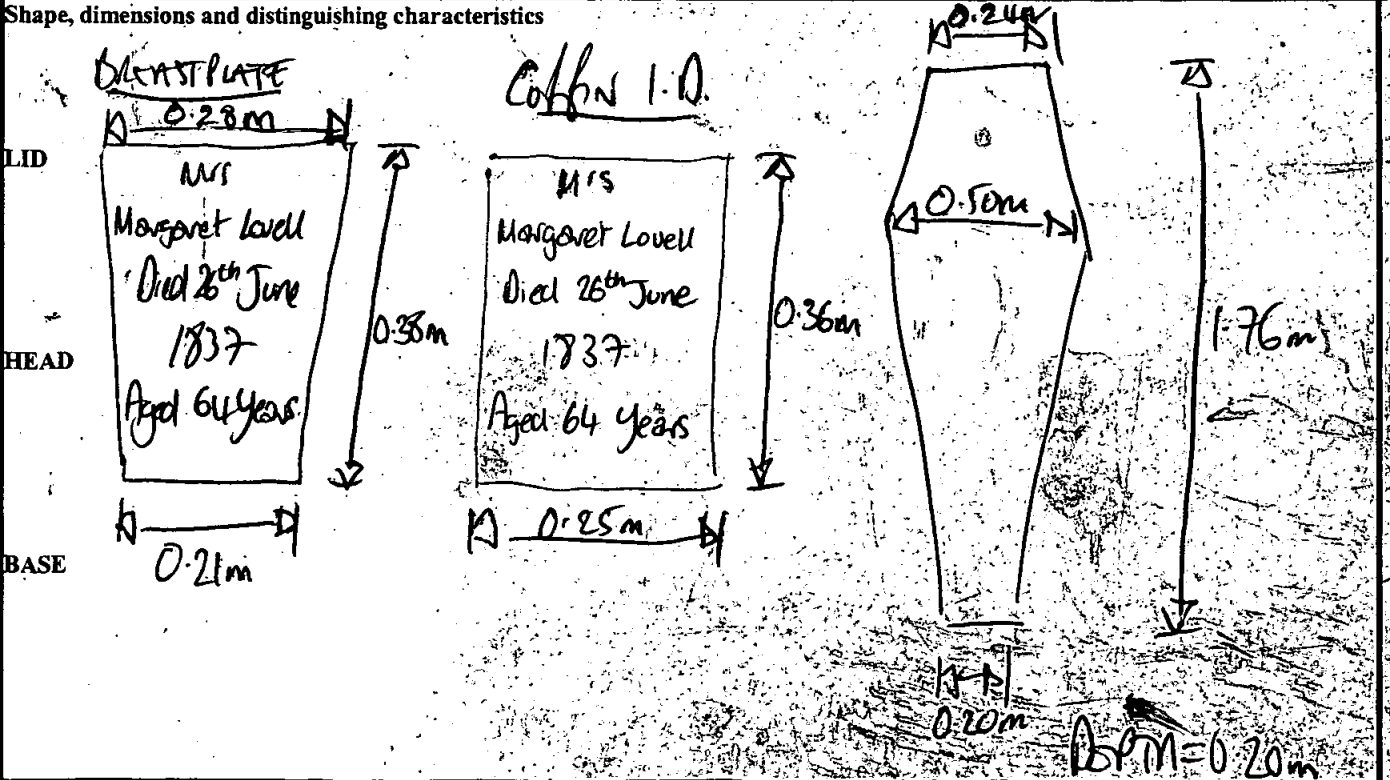 Shape, dimensions and distinguishing characteristics
BREASTPLATE
0.28m
LID
HEAD
BASE
Mrs
Margaret Lovell
Died 26th June
1837
Aged 64 Years
0.38m
0.21m
Coffin I.D.
Mrs
Margaret Lovell
Died 26th June
1837
Aged 64 Years
0.36m
0.25m
0.24m
0.50m
1.76m
0.20m
=0.20m